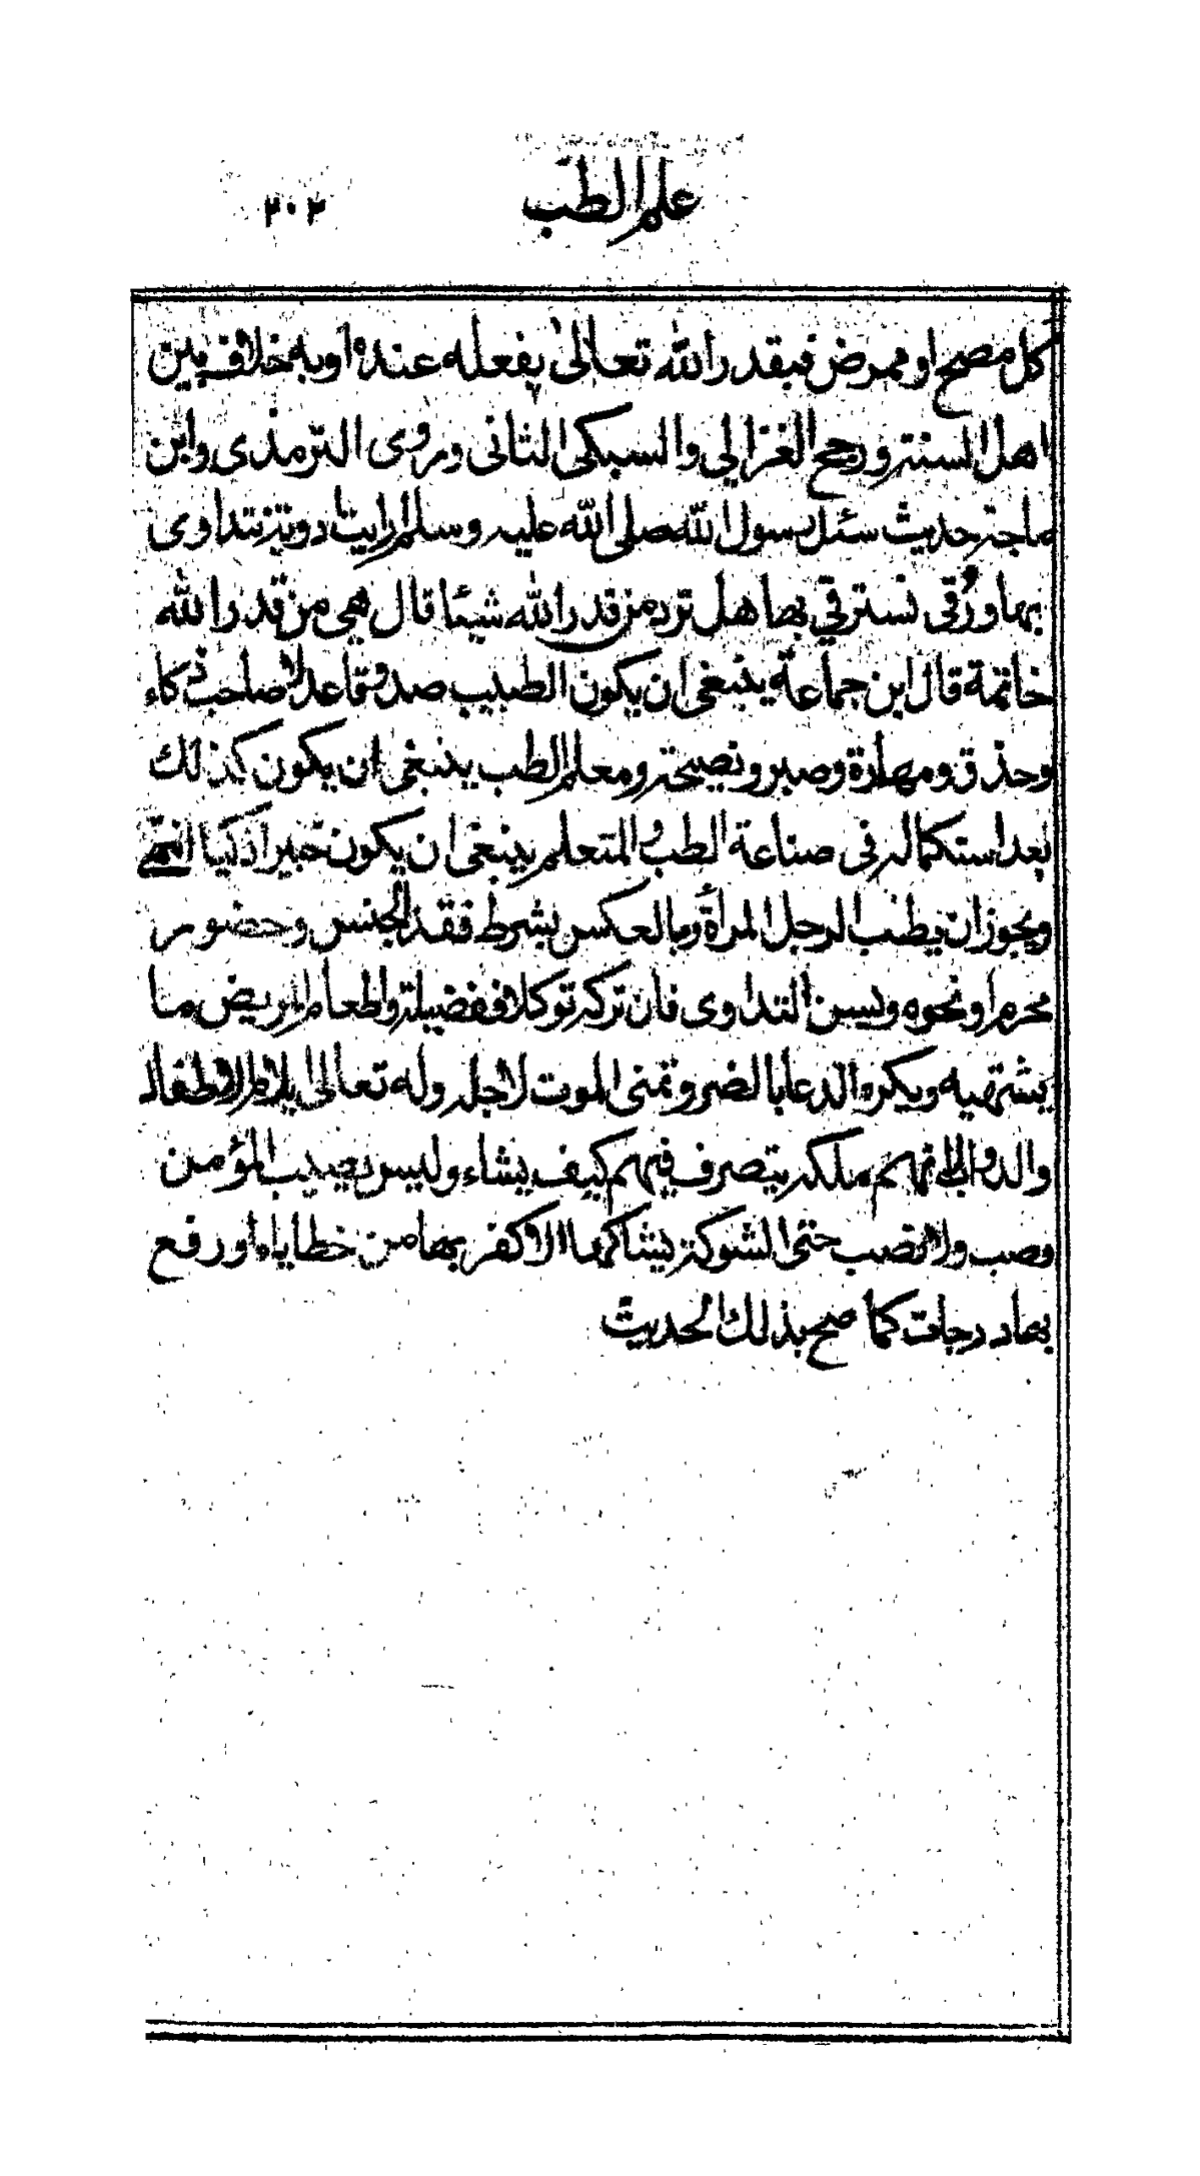 علم الطب
٢٠٢
كل مصح او ممرض فبقدر الله تعالى يفعله عنده او به خلاف بين
اهل السنة ورجح الغزالي والسبكي الثاني وروى الترمذي وابن
ماجة حديث سئل رسول الله صلى الله عليه وسلم ارايت دوية نتداوى
بها ورُقى نسترقي بها هل ترد من قدر الله شيئا قال هي من قدر الله
خاتمة قال ابن جماعة ينبغي ان يكون الطبيب صدوقا عدلا صاحب ذكاء
وحذق ومهارة وصبر ونصيحة ومعلم الطب ينبغي ان يكون كذلك
بعد استكماله في صناعة الطب والمتعلم ينبغي ان يكون خبيرا ذكيا انتهى
ويجوز ان يطبب الرجل المرأة وبالعكس بشرط فقد الجنس وحضور
محرم او نحوه ويسن التداوى فان تركه توكلا ففضيلة واطعام المريض ما
يشتهيه ويكره الدعا بالضر وتمنى الموت لاجله وله تعالى ايلام الاطفال
والدواب لانهم ملكه يتصرف فيهم كيف يشاء وليس يصيب المؤمن
وصب ولا نصب حتى الشوكة يشاكها الا كفر بها من خطاياه او رفع
بها درجات كما صح بذلك الحديث